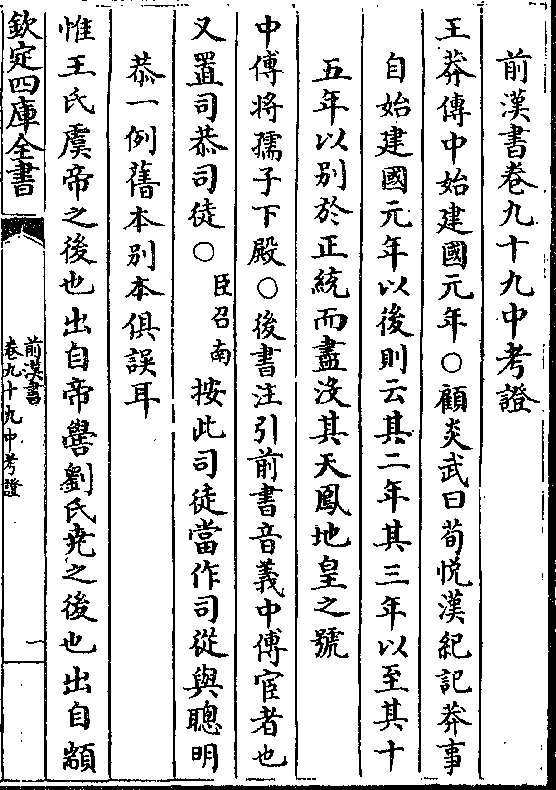 前漢書卷九十九中考證
王莽傳中始建國元年○顧炎武曰荀悅漢紀記莽事
自始建國元年以後則云其二年其三年以至其十
五年以別於正統而盡沒其天鳳地皇之號
中傅將孺子下殿○後書注引前書音義中傅宦者也
又置司恭司徒○臣召南按此司徒當作司從與聰明
恭一例舊本別本俱誤耳
惟王氏虞帝之後也出自帝嚳劉氏堯之後也出自顓
欽定四庫全書
前漢書
卷九十九中考證
一